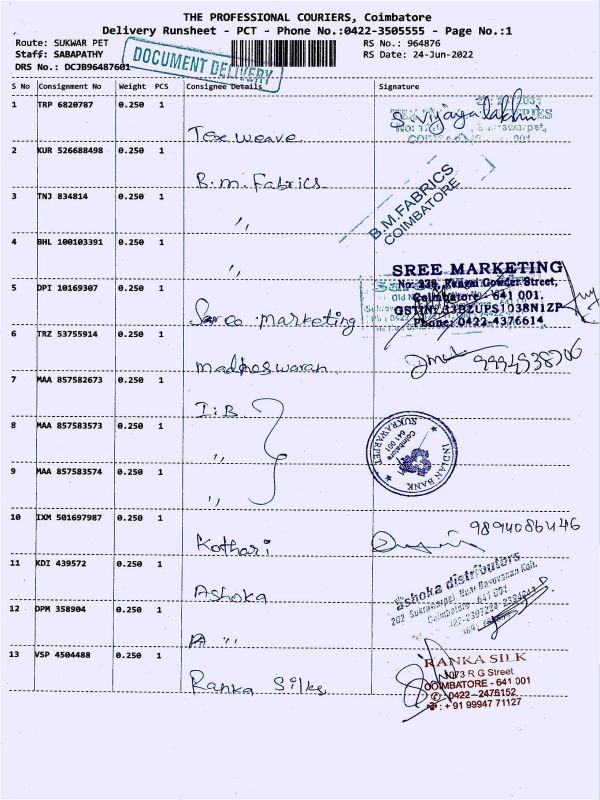 THE PROFESSIONAL COURIERS, Coimbatore
Delivery Runsheet - PCT - Phone No.:0422-3505555 - Page No.:1
Route: SUKWAR PET
RS No.: 964876
Staff: SABAPATHY
RS Date: 24-Jun-2022
DRS No.: DCJB96487601
DOCUMENT DELIVERY
S No Consignment No Weight PCS Consignee Details Signature
1 TRP 6820787 0.250 1
Tex weave S. Vijayalakhmi
2 KUR 526688498 0.250 1
B.M. Fabrics
3 TNJ 834814 0.250 1
"
B.M.FABRICS
COIMBATORE
4 BHL 100103391 0.250 1
"
5 DPI 10169307 0.250 1
Marketing
SREE MARKETING
Gowder Street,
Coimbatore - 641 001.
GSTIN: 33BZUPS1038N1ZP
Phone: 0422-4376614
6 TRZ 53755914 0.250 1
7 MAA 857582673 0.250 1
I.B
8 MAA 857583573 0.250 1
"
9 MAA 857583574 0.250 1
"
INDIAN BANK
SUKRAWARPET
Coimbatore
641 001
10 IXM 501697987 0.250 1
Kothari 9894086446
11 KDI 439572 0.250 1
Ashoka
ashoka distributors
Coimbatore - 641 001
12 DPM 358904 0.250 1
"
13 VSP 4504488 0.250 1
Ranka Silks
RANKA SILK
1073 R G Street
COIMBATORE - 641 001
0422-2476152
+ 91 99947 71127